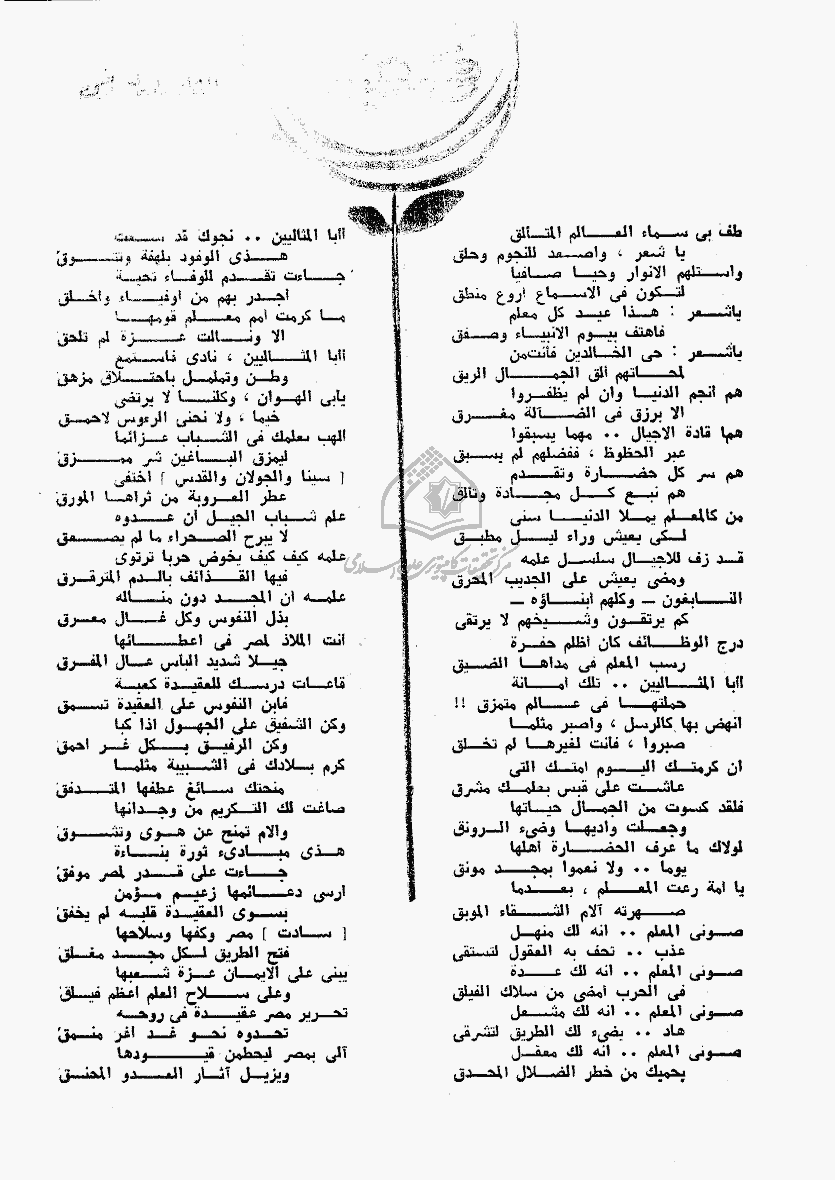 طف بى سماء العالم المتألق
يا شعر ، واصعد للنجوم وحلق
واستلهم الانوار وحيا صافيا
لتكون فى الاسماع اروع منطق
ياشعر : هذا عيد كل معلم
فاهتف بيوم الانبياء وصفق
ياشعر : حى الخالدين فأنت من
لمحاتهم ألق الجمال الريق
هم انجم الدنيا وان لم يظفروا
الا برزق فى الضآلة مغرق
هما قادة الاجيال .. مهما يسبقوا
عبر الحظوظ ، ففضلهم لم يسبق
هم سر كل حضارة وتقدم
هم نبع كل مجادة وتألق
من كالمعلم يملا الدنيا سنى
لكى يعيش وراء ليل مطبق
قد زف للاجيال سلسل علمه
ومضى يعيش على الجديب المحرق
النابغون ــ وكلهم أبناؤه ــ
كم يرتقون وشيخهم لا يرتقى
درج الوظائف كان أظلم حفرة
رسب المعلم فى مداها الضيق
أأبا المثاليين .. تلك أمانة
حملتها فى عالم متمزق !!
انهض بها كالرسل ، واصبر مثلما
صبروا ، فأنت لغيرها لم تخلق
أن كرمتك اليوم امتك التى
عاشت على قبس بعلمك مشرق
فلقد كسوت من الجمال حياتها
وجعلت واديها وضىء الرونق
لولاك ما عرف الحضارة أهلها
يوما .. ولا نعموا بمجد مونق
يا امة رعت المعلم ، بعدما
صهرته آلام الشقاء الموبق
صونى المعلم .. انه لك منهل
عذب .. تحف به العقول لتستقى
صونى المعلم .. انه لك عدة
فى الحرب أمضى من سلاك الفيلق
صونى المعلم .. انه لك مشعل
هاد .. يضىء لك الطريق لتشرقى
صونى المعلم .. انه لك معقل
يحميك من خطر الضلال المحدق
أأبا المثاليين .. نحوك قد سعت
هذى الوفود بلهفة وتشوق
جاءت تقدم للوفاء تحية
أجدر بهم من أوفياء وأخلق
ما كرمت أمم معلم قومها
الا ونالت عزة لم تلحق
أأبا المثاليين ، نادى فاستمع
وطن وتململ باختلاق مزهق
يأبى الهوان ، وكلنا لا يرتضى
ضيما ، ولا نحنى الرءوس لاحمق
الهب بعلمك فى الشباب عزائما
ليمزق الباغين شر ممزق
[ سينا والجولان والقدس ] اختفى
عطر العروبة من ثراها المورق
علم شباب الجيل أن عدوه
لا يبرح الصحراء ما لم يصعق
علمه كيف كيف يخوض حربا ترتوى
فيها القذائف بالدم المترقرق
علمه أن المجد دون مناله
بذل النفوس وكل غال معرق
أنت الملاذ لمصر فى اعطائها
جيلا شديد البأس عال المفرق
قاعات درسك للعقيدة كعبة
فابن النفوس على العقيدة تسمق
وكن الشفيق على الجهول اذا كبا
وكن الرفيق بكل غر احمق
كرم بلادك فى الشبيبة مثلما
منحتك سائغ عطفها المتدفق
صاغت لك التكريم من وجدانها
والام تمنح عن هوى وتشوق
هذى مبادىء ثورة بناءة
جاءت على قدر لمصر موفق
ارسى دعائمها زعيم مؤمن
بسوى العقيدة قلبه لم يخفق
[ سادت ] مصر وكفها وسلاحها
فتح الطريق لكل مجد مغلق
يبنى على الايمان عزة شعبها
وعلى سلاح العلم أعظم فيلق
تحرير مصر عقيدة فى روحه
تحدوه نحو غد أغر منمق
آلى بمصر ليحطمن قيودها
ويزيل آثار العدو المحنق
مركز تحقيقات كامپيوترى علوم اسلامى